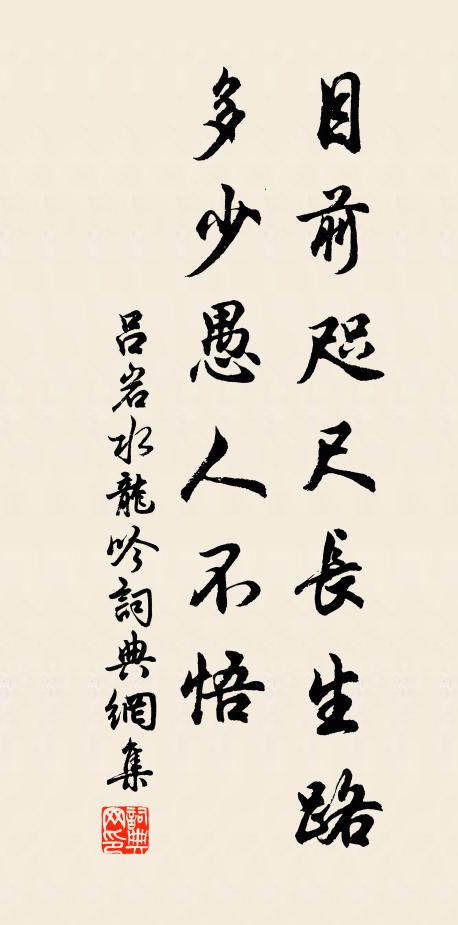 目前咫尺長生路
多少愚人不悟
吕岩水龍吟詞典網集
詞典网印